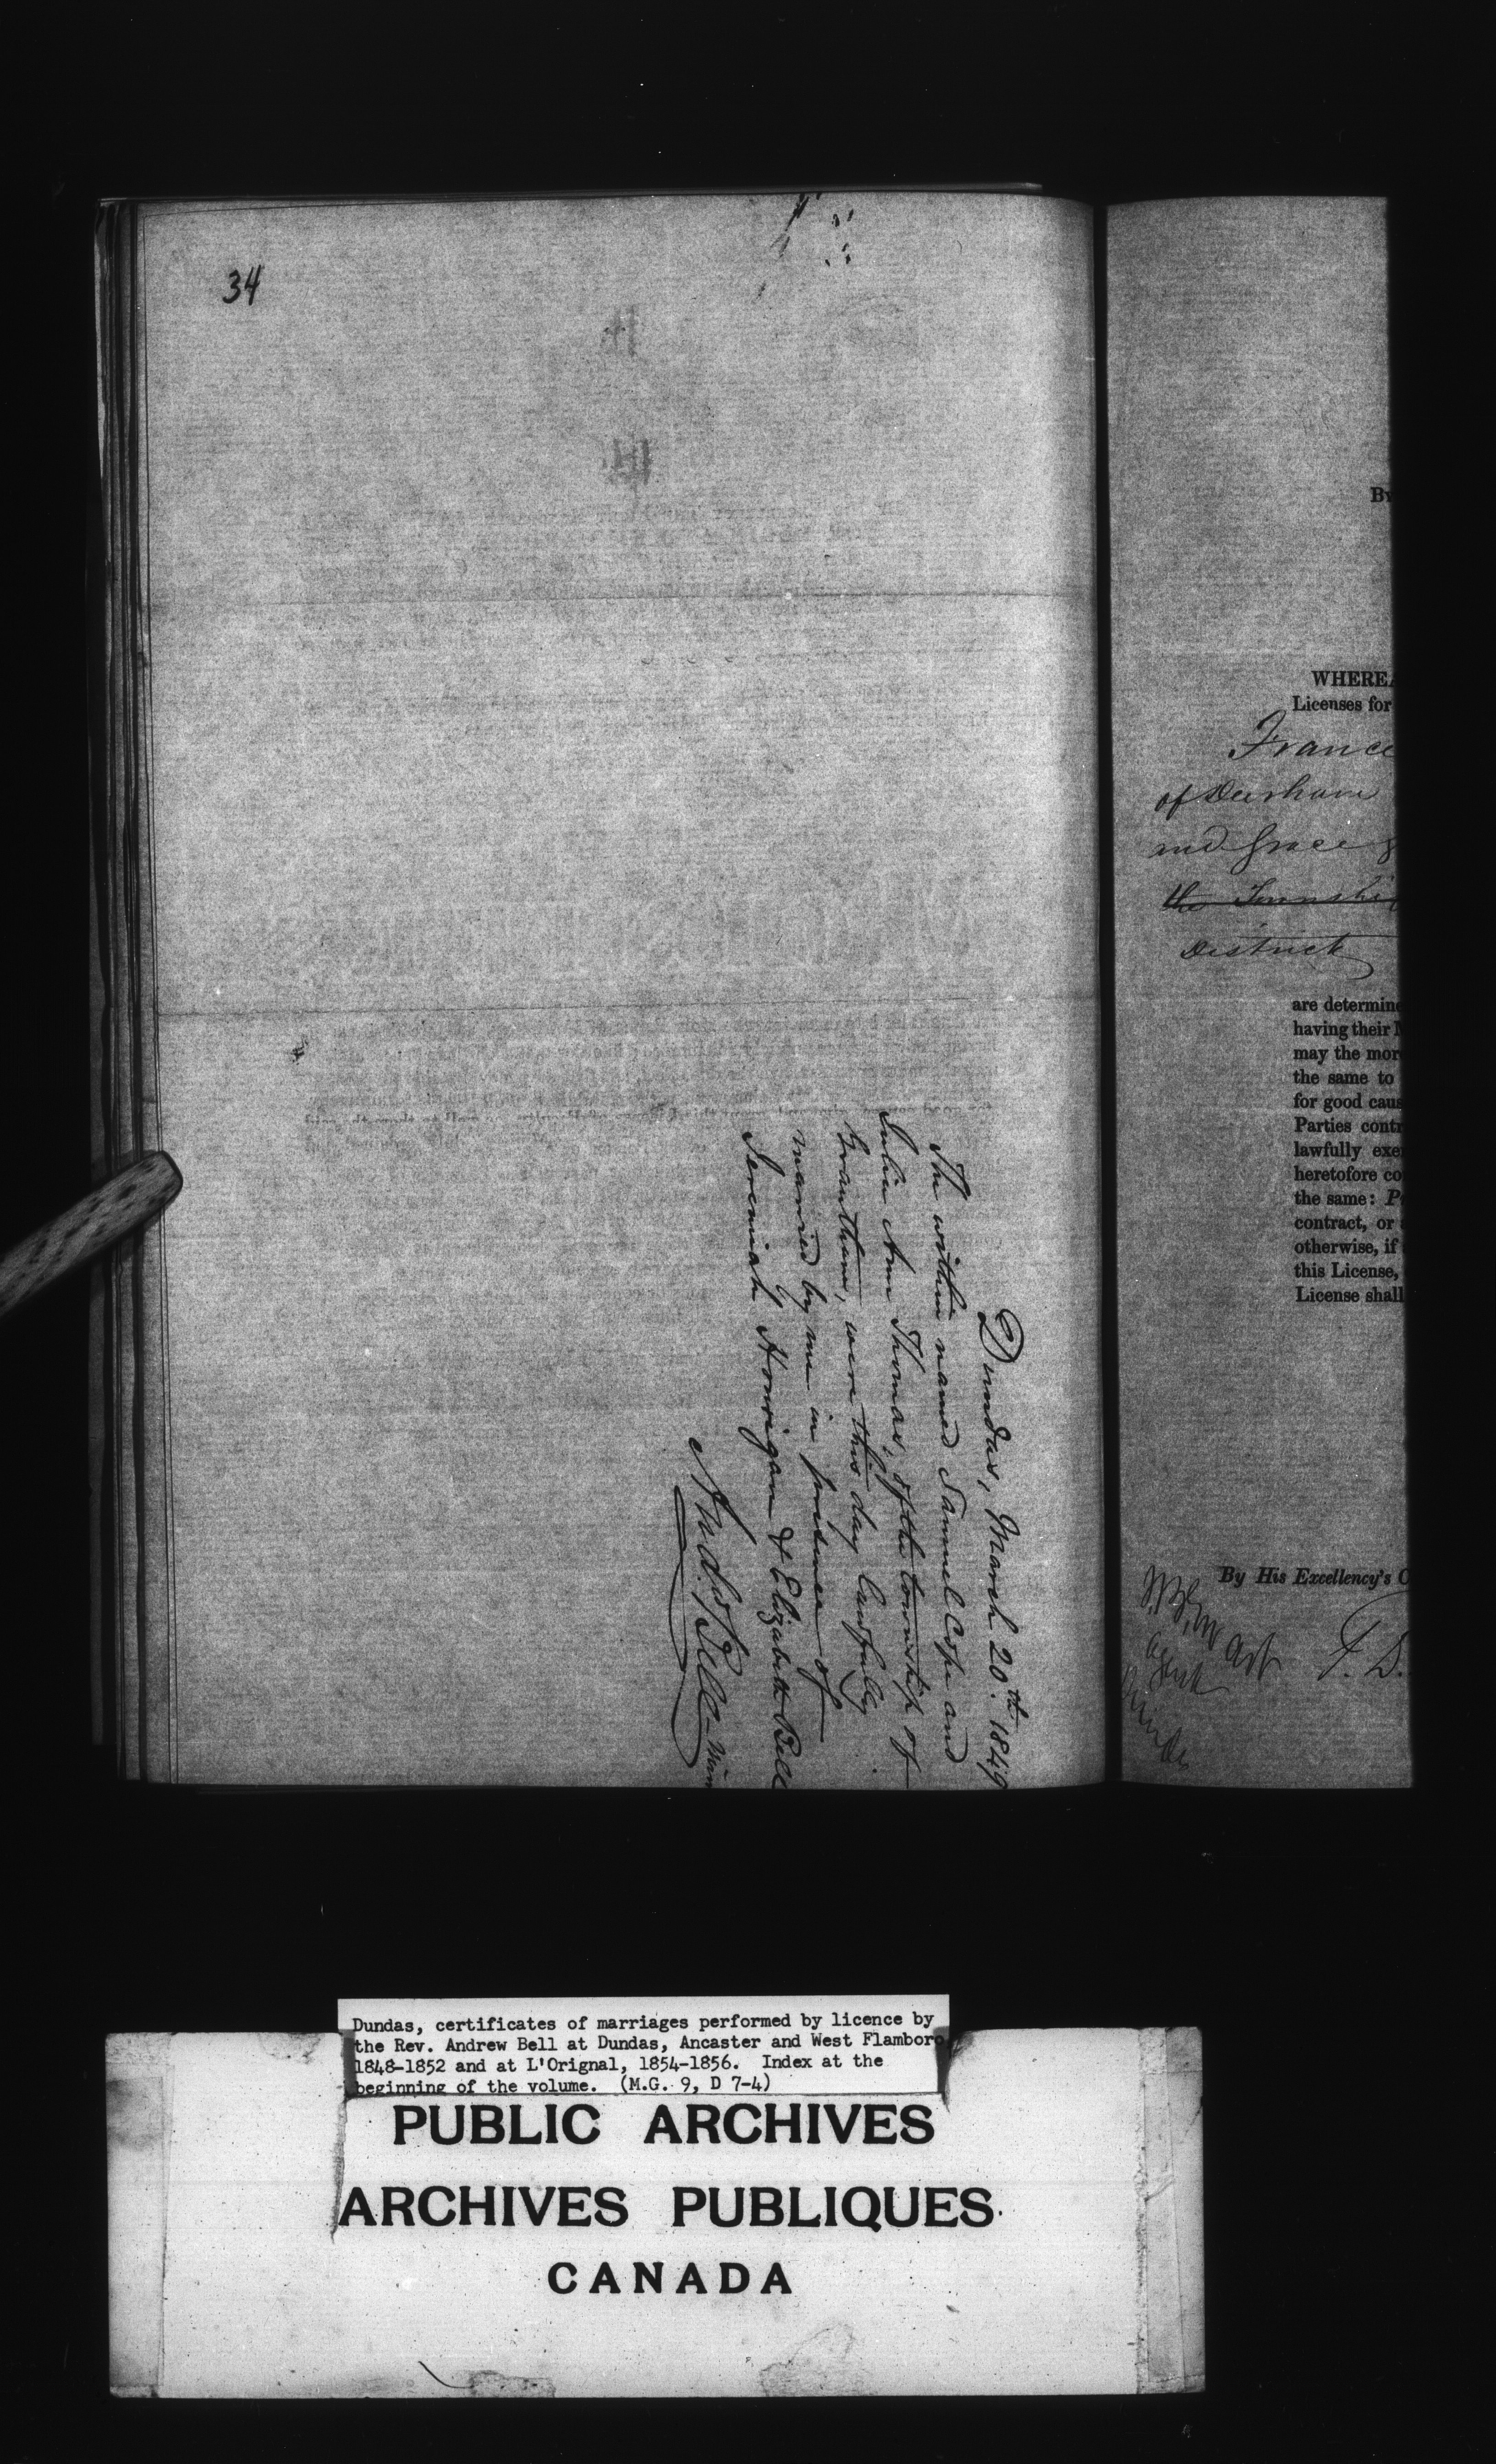 34
Dundas, March 20th. 1849
The within named Samuel Cope and
Julia Ann Thomas, of the township of
Brantham, were this day lawfully
married by me in presence of
Jeremiah Hourigan & Elizabeth Bell
Andw. Bell - Min
By
WHEREA
Licenses for
France
of Durham
and Grace
the Townshi
District
are determine
having their
may the mor
the same to
for good caus
Parties contr
lawfully exe
heretofore co
the same: P
contract, or
otherwise, if
this License,
License shall
By His Excellency's C
T. D.
agent
Dundas, certificates of marriages performed by licence by
the Rev. Andrew Bell at Dundas, Ancaster and West Flamboro,
1848-1852 and at L'Orignal, 1854-1856. Index at the
beginning of the volume. (M.G. 9, D 7-4)
PUBLIC ARCHIVES
ARCHIVES PUBLIQUES
CANADA